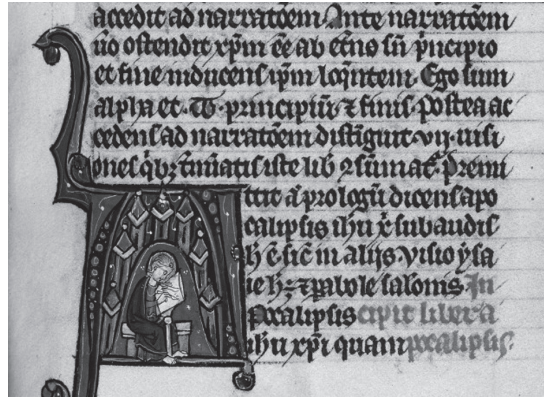 accedit ad narratōem. Ante narratōem
ūo ostendit xp̄m eē ab et̄no sū p̄ncipio
et fine inducens ip̄m loq̄ntem. Ego sum
alpha et .ω. principiū ⁊ finis. Postea ac
cedens ad narratōem distīguit .vij. uisi
ones q̄bꝫ t̄minatis iste lib̄ ꝯsūmat̄. Premi
ttit aū prologū dicens apo
calipsis ihū xp̄i subaudis
h̄ ē sic̄ in alijs. Visio ysa
ie hꝫ ⁊ parabole salōnis In
Pocalipsis cipit liber a
ihū xp̄i quam pocalipsis